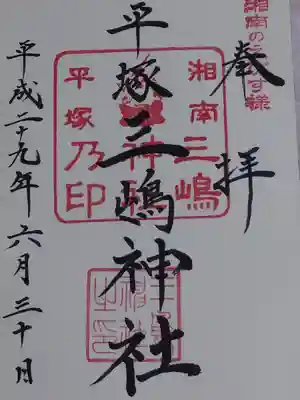 湘南のえびす様
奉拝
湘南三嶋
神社
平塚乃印
平塚三嶋神社
平成二十九年六月三十日